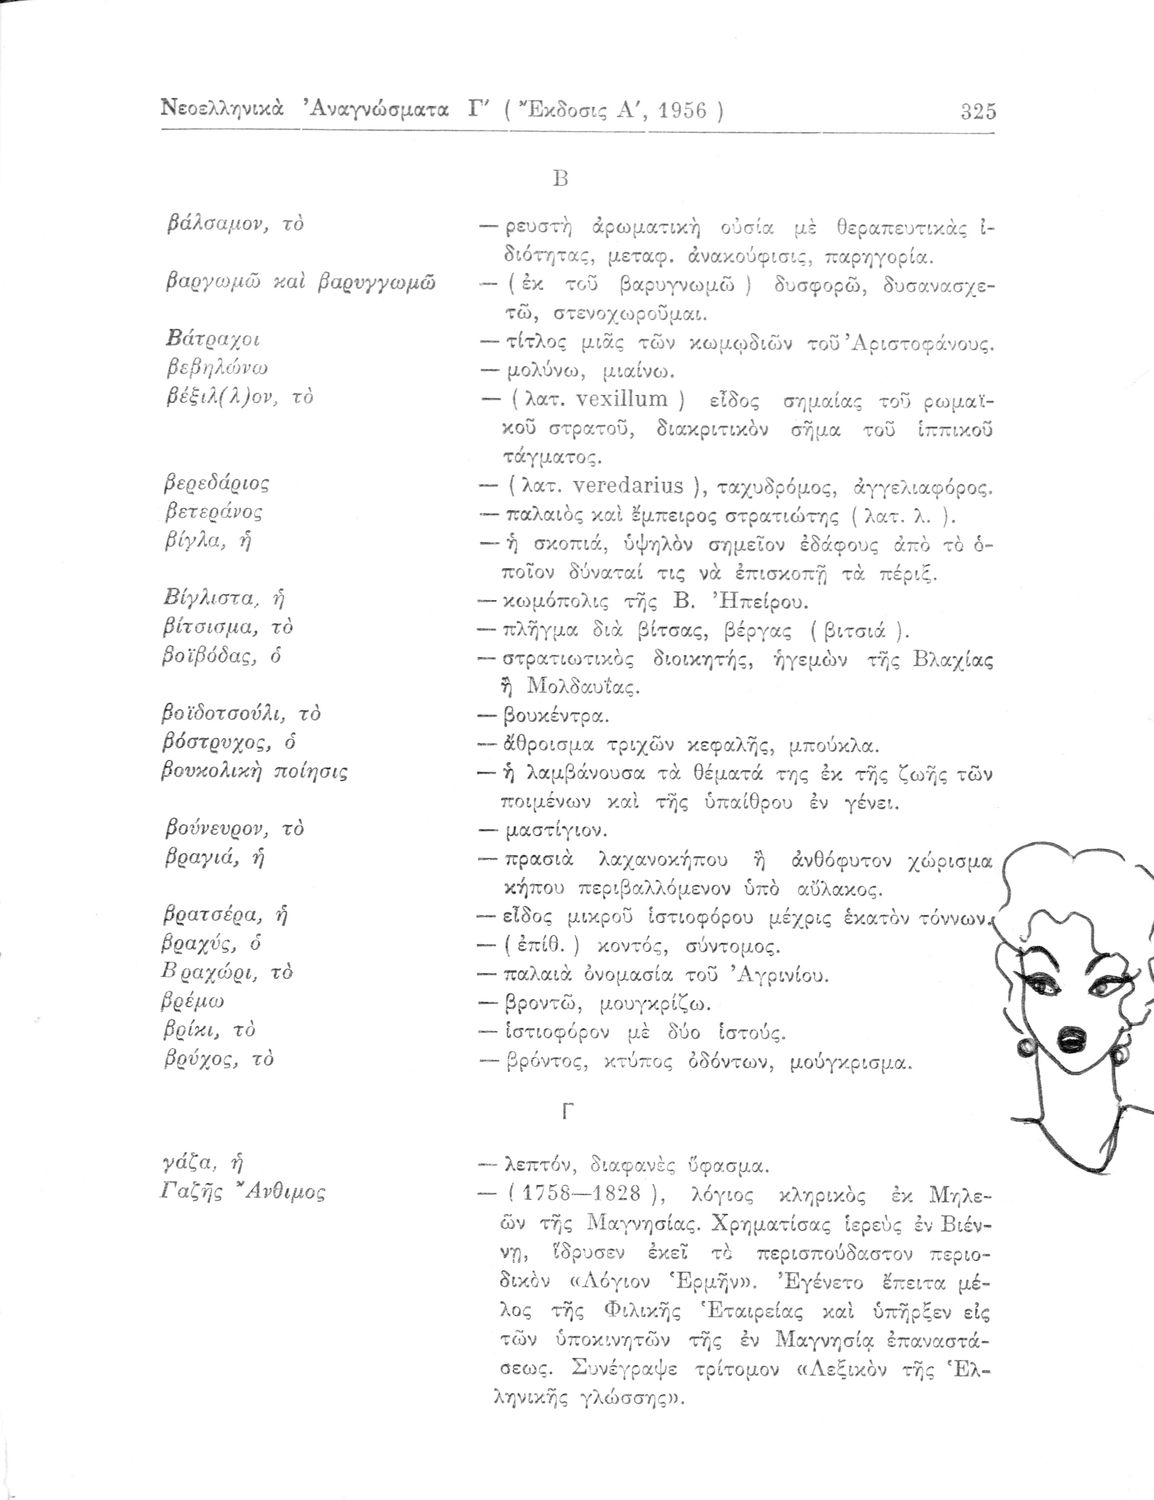 Νεοελληνικὰ Ἀναγνώσματα Γʹ ( Ἔκδοσις Αʹ, 1956 ) 325
Β
βάλσαμον, τὸ — ρευστὴ ἀρωματικὴ οὐσία μὲ θεραπευτικὰς ἰ-
διότητας, μεταφ. ἀνακούφισις, παρηγορία.
βαργωμῶ καὶ βαρυγγωμῶ — ( ἐκ τοῦ βαρυγνωμῶ ) δυσφορῶ, δυσανασχε-
τῶ, στενοχωροῦμαι.
Βάτραχοι — τίτλος μιᾶς τῶν κωμῳδιῶν τοῦ Ἀριστοφάνους.
βεβηλώνω — μολύνω, μιαίνω.
βέξιλ(λ)ον, τὸ — ( λατ. vexillum ) εἶδος σημαίας τοῦ ρωμαϊ-
κοῦ στρατοῦ, διακριτικὸν σῆμα τοῦ ἱππικοῦ
τάγματος.
βερεδάριος — ( λατ. veredarius ), ταχυδρόμος, ἀγγελιαφόρος.
βετεράνος — παλαιὸς καὶ ἔμπειρος στρατιώτης ( λατ. λ. ).
βίγλα, ἡ — ἡ σκοπιά, ὑψηλὸν σημεῖον ἐδάφους ἀπὸ τὸ ὁ-
ποῖον δύναταί τις νὰ ἐπισκοπῇ τὰ πέριξ.
Βίγλιστα, ἡ — κωμόπολις τῆς Β. Ἠπείρου.
βίτσισμα, τὸ — πλῆγμα διὰ βίτσας, βέργας ( βιτσιά ).
βοϊβόδας, ὁ — στρατιωτικὸς διοικητής, ἡγεμὼν τῆς Βλαχίας
ἢ Μολδαυΐας.
βοϊδοτσούλι, τὸ — βουκέντρα.
βόστρυχος, ὁ — ἄθροισμα τριχῶν κεφαλῆς, μπούκλα.
βουκολικὴ ποίησις — ἡ λαμβάνουσα τὰ θέματά της ἐκ τῆς ζωῆς τῶν
ποιμένων καὶ τῆς ὑπαίθρου ἐν γένει.
βούνευρον, τὸ — μαστίγιον.
βραγιά, ἡ — πρασιὰ λαχανοκήπου ἢ ἀνθόφυτον χώρισμα
κήπου περιβαλλόμενον ὑπὸ αὔλακος.
βρατσέρα, ἡ — εἶδος μικροῦ ἱστιοφόρου μέχρις ἑκατὸν τόννων.
βραχύς, ὁ — ( ἐπίθ. ) κοντός, σύντομος.
Βραχώρι, τὸ — παλαιὰ ὀνομασία τοῦ Ἀγρινίου.
βρέμω — βροντῶ, μουγκρίζω.
βρίκι, τὸ — ἱστιοφόρον μὲ δύο ἱστούς.
βρύχος, τὸ — βρόντος, κτύπος ὀδόντων, μούγκρισμα.
Γ
γάζα, ἡ — λεπτόν, διαφανὲς ὕφασμα.
Γαζῆς Ἄνθιμος — ( 1758—1828 ), λόγιος κληρικὸς ἐκ Μηλε-
ῶν τῆς Μαγνησίας. Χρηματίσας ἱερεὺς ἐν Βιέν-
νῃ, ἵδρυσεν ἐκεῖ τὸ περισπούδαστον περιο-
δικὸν «Λόγιον Ἑρμῆν». Ἐγένετο ἔπειτα μέ-
λος τῆς Φιλικῆς Ἑταιρείας καὶ ὑπῆρξεν εἷς
τῶν ὑποκινητῶν τῆς ἐν Μαγνησίᾳ ἐπαναστά-
σεως. Συνέγραψε τρίτομον «Λεξικὸν τῆς Ἑλ-
ληνικῆς γλώσσης».